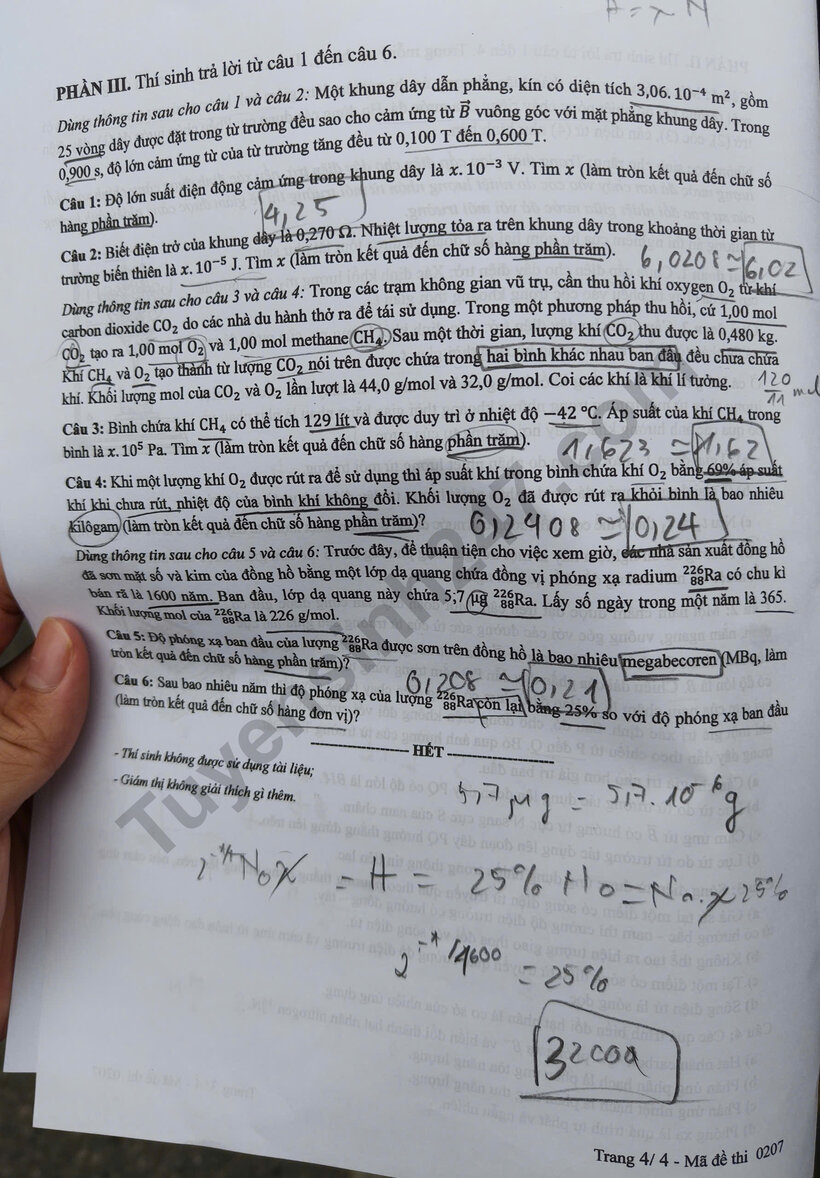 H = λN
PHẦN III. Thí sinh trả lời từ câu 1 đến câu 6.
Dùng thông tin sau cho câu 1 và câu 2: Một khung dây dẫn phẳng, kín có diện tích 3,06.10⁻⁴ m², gồm
25 vòng dây được đặt trong từ trường đều sao cho cảm ứng từ B⃗ vuông góc với mặt phẳng khung dây. Trong
0,900 s, độ lớn cảm ứng từ của từ trường tăng đều từ 0,100 T đến 0,600 T.
Câu 1: Độ lớn suất điện động cảm ứng trong khung dây là x.10⁻³ V. Tìm x (làm tròn kết quả đến chữ số
hàng phần trăm).
4,25
Câu 2: Biết điện trở của khung dây là 0,270 Ω. Nhiệt lượng tỏa ra trên khung dây trong khoảng thời gian từ
trường biến thiên là x.10⁻⁵ J. Tìm x (làm tròn kết quả đến chữ số hàng phần trăm).
6,0208 ≈ 6,02
Dùng thông tin sau cho câu 3 và câu 4: Trong các trạm không gian vũ trụ, cần thu hồi khí oxygen O₂ từ khí
carbon dioxide CO₂ do các nhà du hành thở ra để tái sử dụng. Trong một phương pháp thu hồi, cứ 1,00 mol
CO₂ tạo ra 1,00 mol O₂ và 1,00 mol methane CH₄. Sau một thời gian, lượng khí CO₂ thu được là 0,480 kg.
Khí CH₄ và O₂ tạo thành từ lượng CO₂ nói trên được chứa trong hai bình khác nhau ban đầu đều chưa chứa
khí. Khối lượng mol của CO₂ và O₂ lần lượt là 44,0 g/mol và 32,0 g/mol. Coi các khí là khí lí tưởng.
120/11 mol
Câu 3: Bình chứa khí CH₄ có thể tích 129 lít và được duy trì ở nhiệt độ −42 °C. Áp suất của khí CH₄ trong
bình là x.10⁵ Pa. Tìm x (làm tròn kết quả đến chữ số hàng phần trăm).
1,623 ≈ 1,62
Câu 4: Khi một lượng khí O₂ được rút ra để sử dụng thì áp suất khí trong bình chứa khí O₂ bằng 69% áp suất
khí khi chưa rút, nhiệt độ của bình khí không đổi. Khối lượng O₂ đã được rút ra khỏi bình là bao nhiêu
kilôgam (làm tròn kết quả đến chữ số hàng phần trăm)?
0,2408 ≈ 0,24
Dùng thông tin sau cho câu 5 và câu 6: Trước đây, để thuận tiện cho việc xem giờ, các nhà sản xuất đồng hồ
đã sơn mặt số và kim của đồng hồ bằng một lớp dạ quang chứa đồng vị phóng xạ radium ²²⁶₈₈Ra có chu kì
bán rã là 1600 năm. Ban đầu, lớp dạ quang này chứa 5,7 μg ²²⁶₈₈Ra. Lấy số ngày trong một năm là 365.
Khối lượng mol của ²²⁶₈₈Ra là 226 g/mol.
Câu 5: Độ phóng xạ ban đầu của lượng ²²⁶₈₈Ra được sơn trên đồng hồ là bao nhiêu megabecơren (MBq, làm
tròn kết quả đến chữ số hàng phần trăm)?
0,208 ≈ 0,21
Câu 6: Sau bao nhiêu năm thì độ phóng xạ của lượng ²²⁶₈₈Ra còn lại bằng 25% so với độ phóng xạ ban đầu
(làm tròn kết quả đến chữ số hàng đơn vị)?
HẾT
- Thí sinh không được sử dụng tài liệu;
- Giám thị không giải thích gì thêm.
5,7 μg = 5,7.10⁻⁶ g
N₀λ = H = 25% H₀ = N₀.λ 25%
= 25%
3200
Trang 4/ 4 - Mã đề thi 0207
Tuyensinh247.com